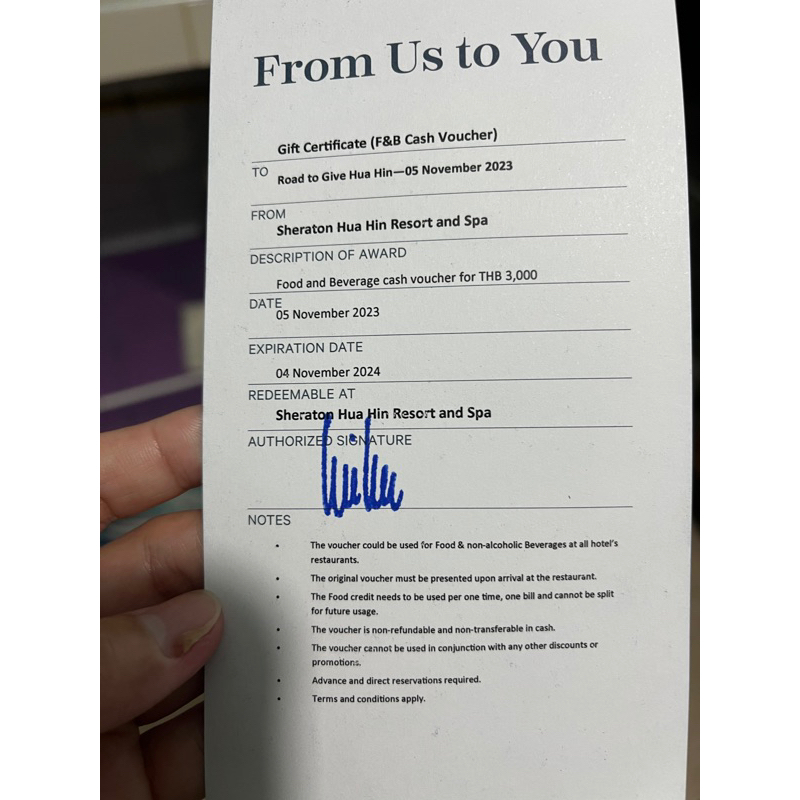 From Us to You
Gift Certificate (F&B Cash Voucher)
TO
Road to Give Hua Hin—05 November 2023
FROM
Sheraton Hua Hin Resort and Spa
DESCRIPTION OF AWARD
Food and Beverage cash voucher for THB 3,000
DATE
05 November 2023
EXPIRATION DATE
04 November 2024
REDEEMABLE AT
Sheraton Hua Hin Resort and Spa
AUTHORIZED SIGNATURE
NOTES
• The voucher could be used for Food & non-alcoholic Beverages at all hotel's
restaurants.
• The original voucher must be presented upon arrival at the restaurant.
• The Food credit needs to be used per one time, one bill and cannot be split
for future usage.
• The voucher is non-refundable and non-transferable in cash.
• The voucher cannot be used in conjunction with any other discounts or
promotions.
• Advance and direct reservations required.
• Terms and conditions apply.